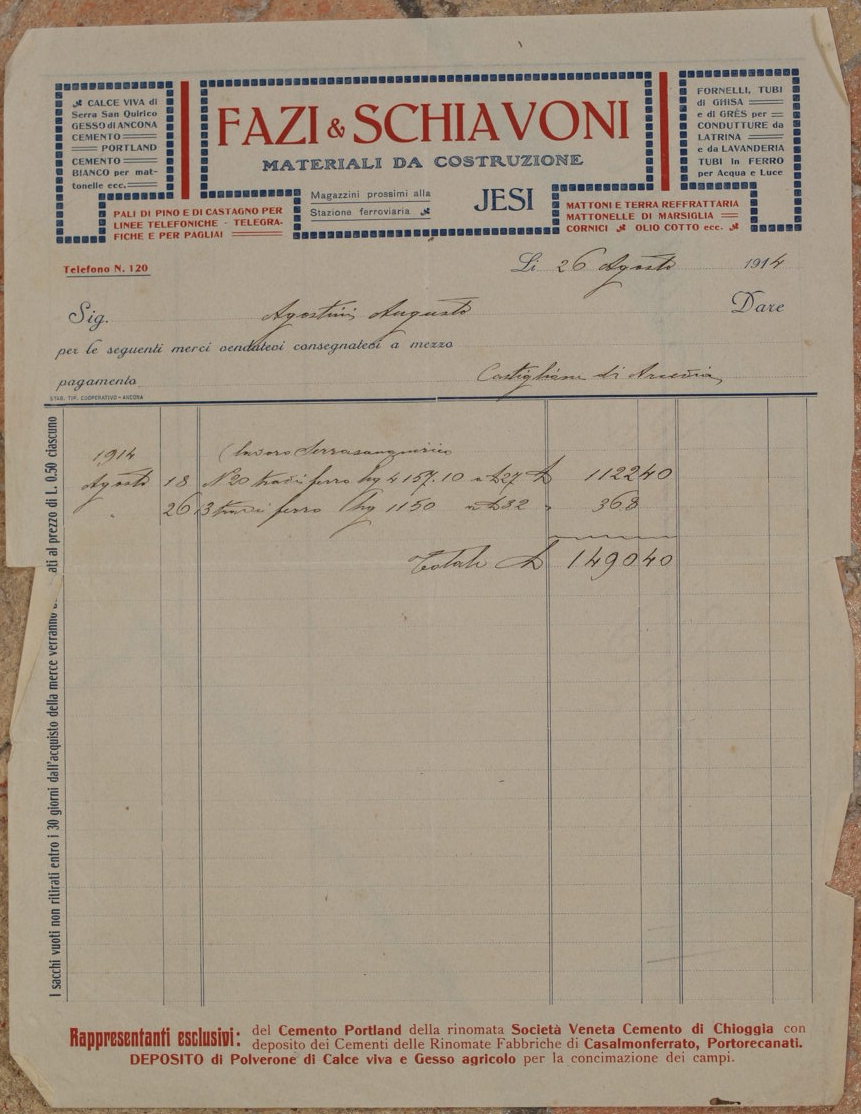 CALCE VIVA di
Serra San Quirico
GESSO di ANCONA
CEMENTO
PORTLAND
CEMENTO
BIANCO per mat-
tonelle ecc.
PALI DI PINO E DI CASTAGNO PER
LINEE TELEFONICHE - TELEGRA-
FICHE E PER PAGLIAI
FAZI & SCHIAVONI
MATERIALI DA COSTRUZIONE
Magazzini prossimi alla
Stazione ferroviaria
JESI
FORNELLI, TUBI
di GHISA
e di GRÈS per
CONDUTTURE da
LATRINA
e da LAVANDERIA
TUBI in FERRO
per Acqua e Luce
MATTONI E TERRA REFRATTARIA
MATTONELLE DI MARSIGLIA
CORNICI OLIO COTTO ecc.
Telefono N. 120
Li 26 Agosto 1914
Sig. Agostini Augusto Dare
per le seguenti merci vendutevi consegnatevi a mezzo
pagamento Castiglione di Arcevia
STAB. TIP. COOPERATIVO - ANCONA
1914 (lavoro Serrasanquirico
Agosto 18 N 20 travi ferro Kg 4157.10 a £ 27 £ 112240
" 26 3 travi ferro Kg 1150 a £ 32 " 368
Totale £ 149040
I sacchi vuoti non ritirati entro i 30 giorni dall'acquisto della merce verranno ati al prezzo di L. 0.50 ciascuno
Rappresentanti esclusivi: del Cemento Portland della rinomata Società Veneta Cemento di Chioggia con
deposito dei Cementi delle Rinomate Fabbriche di Casalmonferrato, Portorecanati.
DEPOSITO di Polverone di Calce viva e Gesso agricolo per la concimazione dei campi.